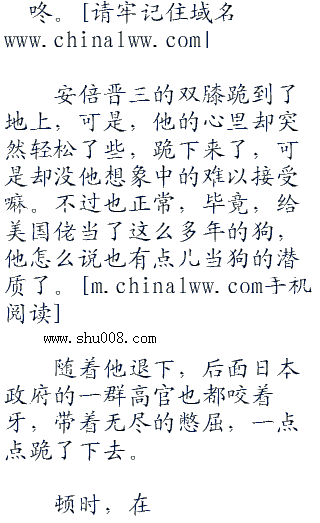 咚。[请牢记住域名
www.china1ww.com|
安倍晋三的双膝跪到了
地上，可是，他的心里却突
然轻松了些，跪下来了，可
是却没他想象中的难以接受
嘛。不过也正常，毕竟，给
美国佬当了这么多年的狗，
他怎么说也有点儿当狗的潜
质了。[m.china1ww.com手机
阅读]
www.shu008.com
随着他退下，后面日本
政府的一群高官也都咬着
牙，带着无尽的憋屈，一点
点跪了下去。
顿时，在